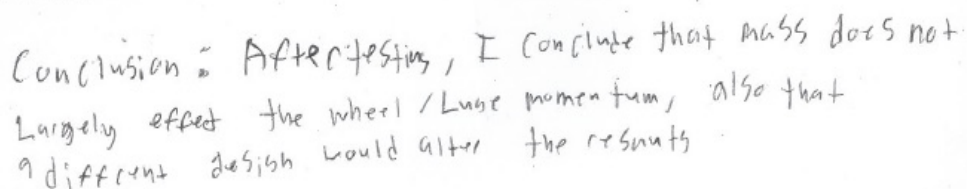 Conclusion: After testing, I Conclude that mass does not
Largely effect the wheel / Luge momentum, also that
a diffrent design would alter the resauts